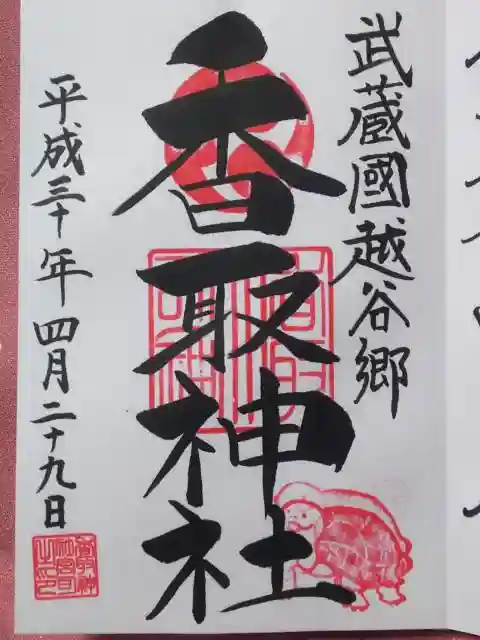 武蔵國越谷郷
香取神社
平成三十年四月二十九日